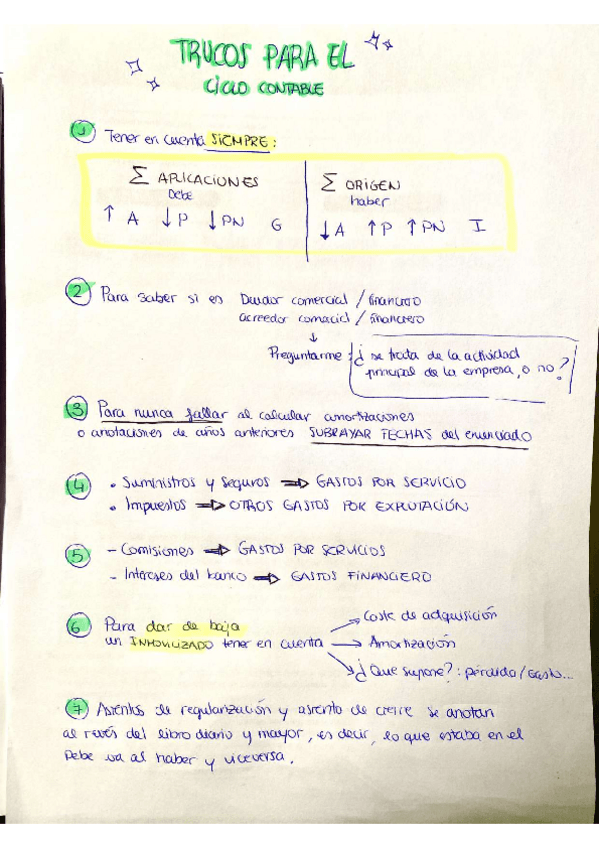 TRUCOS PARA EL
CICLO CONTABLE
1 Tener en cuenta SIEMPRE:
Σ APLICACIONES
Debe
↑ A ↓ P ↓ PN G
Σ ORIGEN
haber
↓ A ↑ P ↑ PN I
2 Para saber si es Deudor comercial / financiero
acreedor comercial / financiero
↓
Preguntarme ¿ se trata de la actividad
principal de la empresa, o no ?
3 Para nunca fallar al calcular amortizaciones
o anotaciones de años anteriores SUBRAYAR FECHAS del enunciado
4 • Suministros y seguros ⇒ GASTOS POR SERVICIO
• Impuestos ⇒ OTROS GASTOS POR EXPLOTACIÓN
5 - Comisiones ⇒ GASTOS POR SERVICIOS
- Intereses del banco ⇒ GASTOS FINANCIERO
6 Para dar de baja
un INMOVILIZADO tener en cuenta
→ Coste de adquisición
→ Amortización
→ ¿Que supone? : pérdida / Gasto...
7 Asientos de regularización y asiento de cierre se anotan
al revés del libro diario y mayor, es decir, lo que estaba en el
Debe va al haber y viceversa.